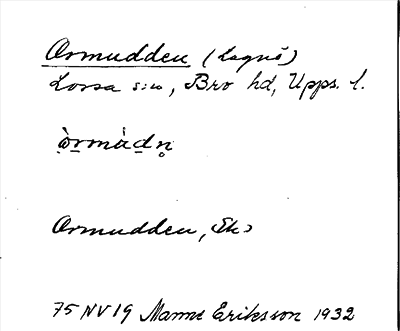 Ormudden (lägris)
Lossa sn, Bro hd, Upps. l.
òrmàdn̥
Ormudden, Ek
75 NV 19 Manne Eriksson 1932